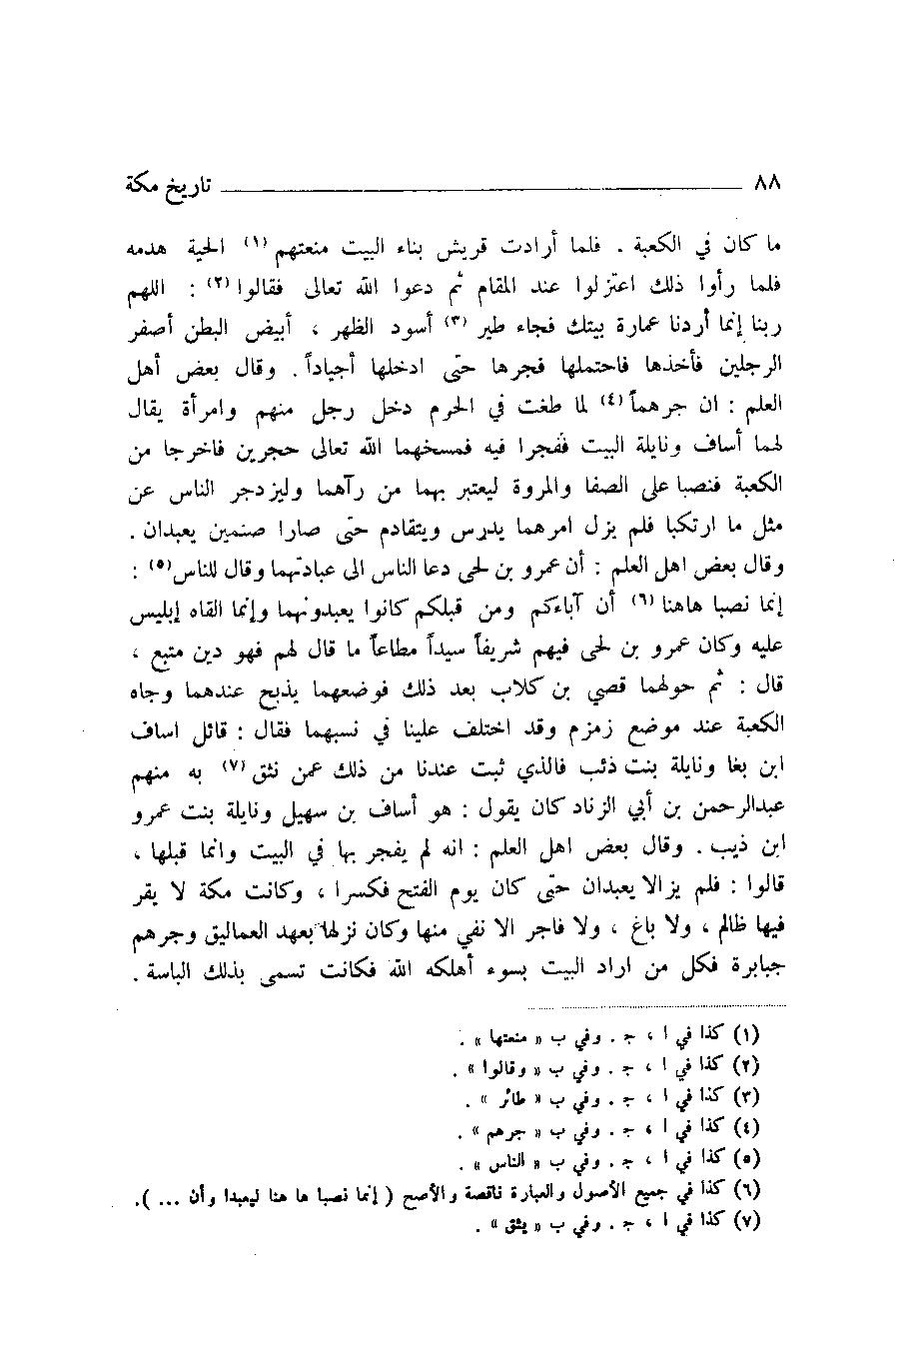 ٨٨ تاريخ مكة
ما كان في الكعبة . فلما أرادت قريش بناء البيت منعتهم (١) الحية هدمه
فلما رأوا ذلك اعتزلوا عند المقام ثم دعوا الله تعالى فقالوا (٢) : اللهم
ربنا إنما أردنا عمارة بيتك فجاء طير (٣) أسود الظهر ، أبيض البطن أصفر
الرجلين فأخذها فاحتملها فجرها حتى ادخلها أجياداً . وقال بعض أهل
العلم : ان جرهماً (٤) لما طغت في الحرم دخل رجل منهم وامرأة يقال
لهما أساف ونايلة البيت ففجرا فيه فمسخهما الله تعالى حجرين فاخرجا من
الكعبة فنصبا على الصفا والمروة ليعتبر بهما من رآهما وليزدجر الناس عن
مثل ما ارتكبا فلم يزل امرهما يدرس ويتقادم حتى صارا صنمين يعبدان .
وقال بعض اهل العلم : أن عمرو بن لحى دعا الناس الى عبادتهما وقال للناس (٥) :
إنما نصبا هاهنا (٦) أن آباءكم ومن قبلكم كانوا يعبدونهما وإنما القاه إبليس
عليه وكان عمرو بن لحى فيهم شريفاً سيداً مطاعاً ما قال لهم فهو دين متبع ،
قال : ثم حولهما قصي بن كلاب بعد ذلك فوضعهما يذبح عندهما وجاه
الكعبة عند موضع زمزم وقد اختلف علينا في نسبهما فقال : قائل اساف
ابن بغا ونايلة بنت ذئب فالذي ثبت عندنا من ذلك عمن نثق (٧) به منهم
عبدالرحمن بن أبي الزناد كان يقول : هو أساف بن سهيل ونايلة بنت عمرو
ابن ذيب . وقال بعض اهل العلم : انه لم يفجر بها في البيت وانما قبلها ،
قالوا : فلم يزالا يعبدان حتى كان يوم الفتح فكسرا ، وكانت مكة لا يقر
فيها ظالم ، ولا باغ ، ولا فاجر الا نفي منها وكان نزلها بعهد العماليق وجرهم
جبابرة فكل من اراد البيت بسوء أهلكه الله فكانت تسمى بذلك الباسة .
(١) كذا في ا ، ج . وفي ب « منعتها » .
(٢) كذا في ا ، ج . وفي ب « وقالوا » .
(٣) كذا في ا ، ج . وفي ب « طائر » .
(٤) كذا في ا ، ج . وفي ب « جرهم » .
(٥) كذا في ا ، ج . وفي ب « الناس » .
(٦) كذا في جميع الأصول والعبارة ناقصة والأصح ( إنما نصبا ها هنا ليعبدا وأن ... ).
(٧) كذا في ا ، ج . وفي ب « يثق » .